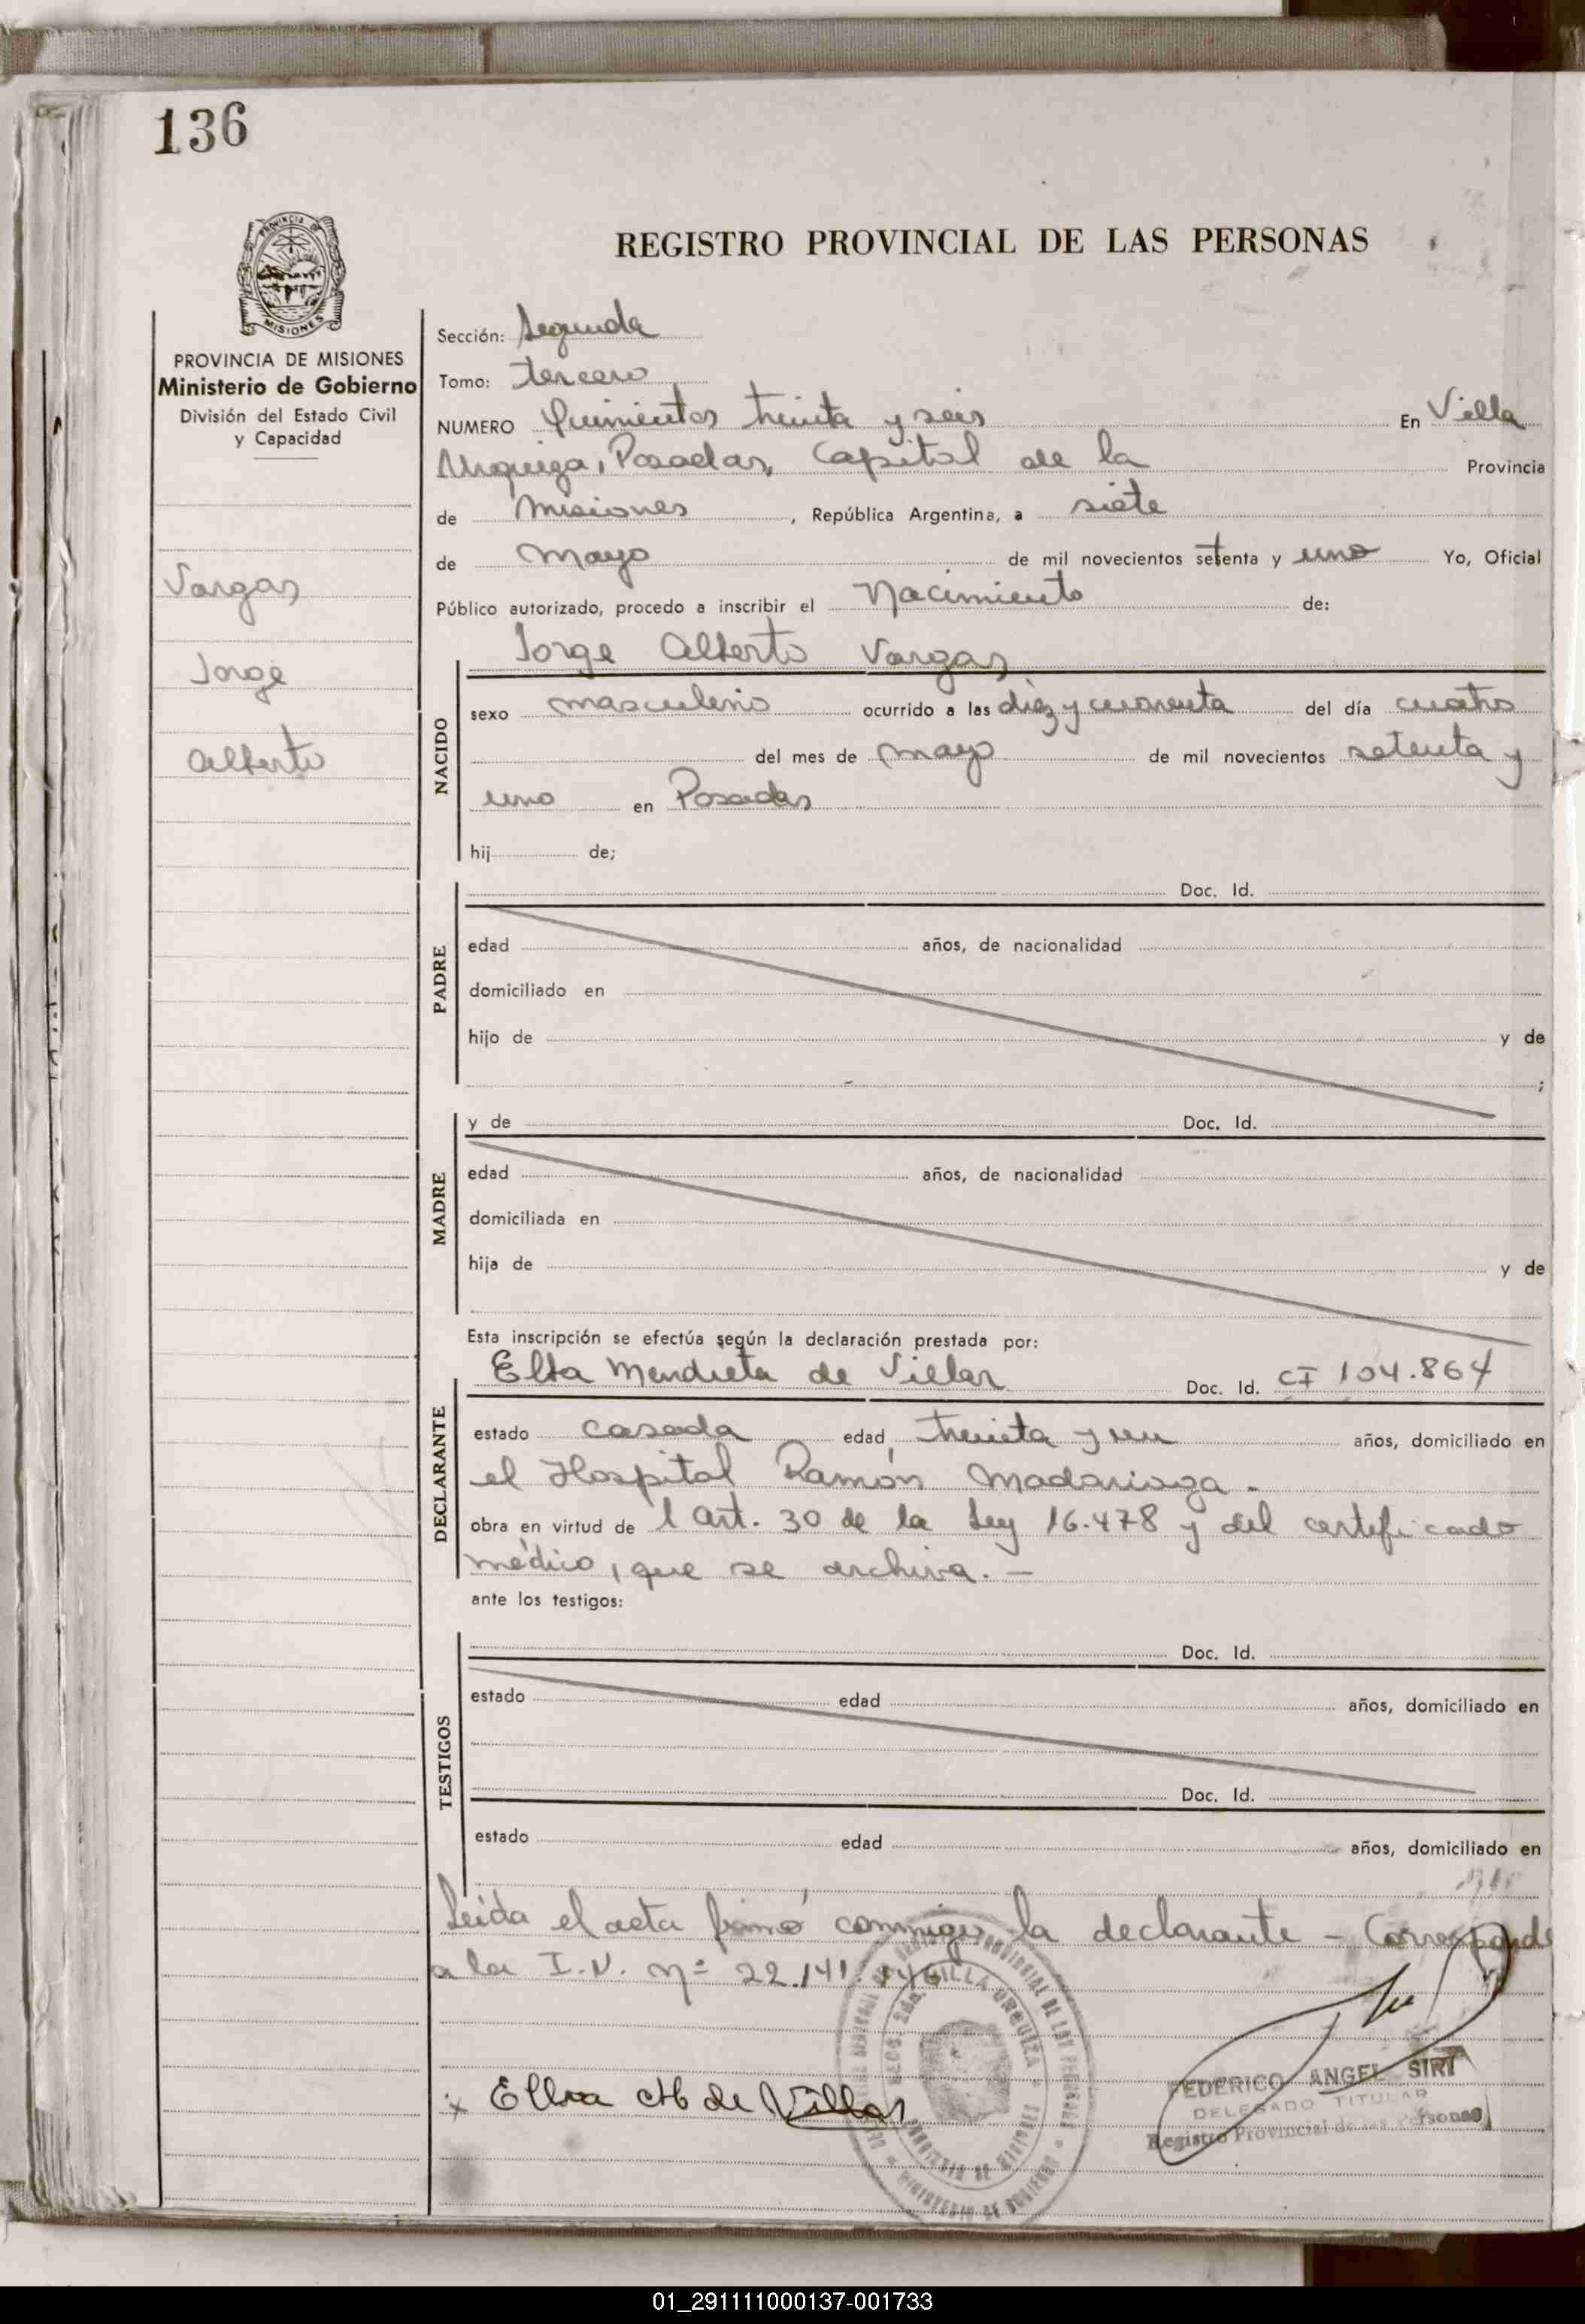 136
PROVINCIA DE
MISIONES
REGISTRO PROVINCIAL DE LAS PERSONAS
PROVINCIA DE MISIONES
Ministerio de Gobierno
División del Estado Civil
y Capacidad
Vargas
Jorge
Alberto
Sección: Segunda
Tomo: tercero
NUMERO Quinientos treinta y seis En Villa
Urquiza, Posadas, Capital de la Provincia
de Misiones, República Argentina, a siete
de Mayo de mil novecientos setenta y uno Yo, Oficial
Público autorizado, procedo a inscribir el Nacimiento de:
Jorge Alberto Vargas
NACIDO
sexo masculino ocurrido a las diez y cuarenta del día cuatro
del mes de mayo de mil novecientos setenta y
uno en Posadas
hij de;
PADRE
Doc. Id.
edad años, de nacionalidad
domiciliado en
hijo de y de
;
MADRE
y de Doc. Id.
edad años, de nacionalidad
domiciliada en
hija de y de
Esta inscripción se efectúa según la declaración prestada por:
DECLARANTE
Elba Mendieta de Villar Doc. Id. CI 104.864
estado casada edad treinta y un años, domiciliado en
el Hospital Ramón Madariaga.
obra en virtud de l Art. 30 de la Ley 16.478 y del certificado
médico, que se archiva. —
ante los testigos:
TESTIGOS
Doc. Id.
estado edad años, domiciliado en
Doc. Id.
estado edad años, domiciliado en
Leída el acta firmó conmigo la declarante - Corresponde
a la I.N. Nº 22.141.
x Elba M de Villar
VILLA URQUIZA
PROVINCIA DE MISIONES
MINISTERIO DE GOBIERNO
FEDERICO ANGEL SIRI
DELEGADO TITULAR
Registro Provincial de las Personas
01_291111000137-001733